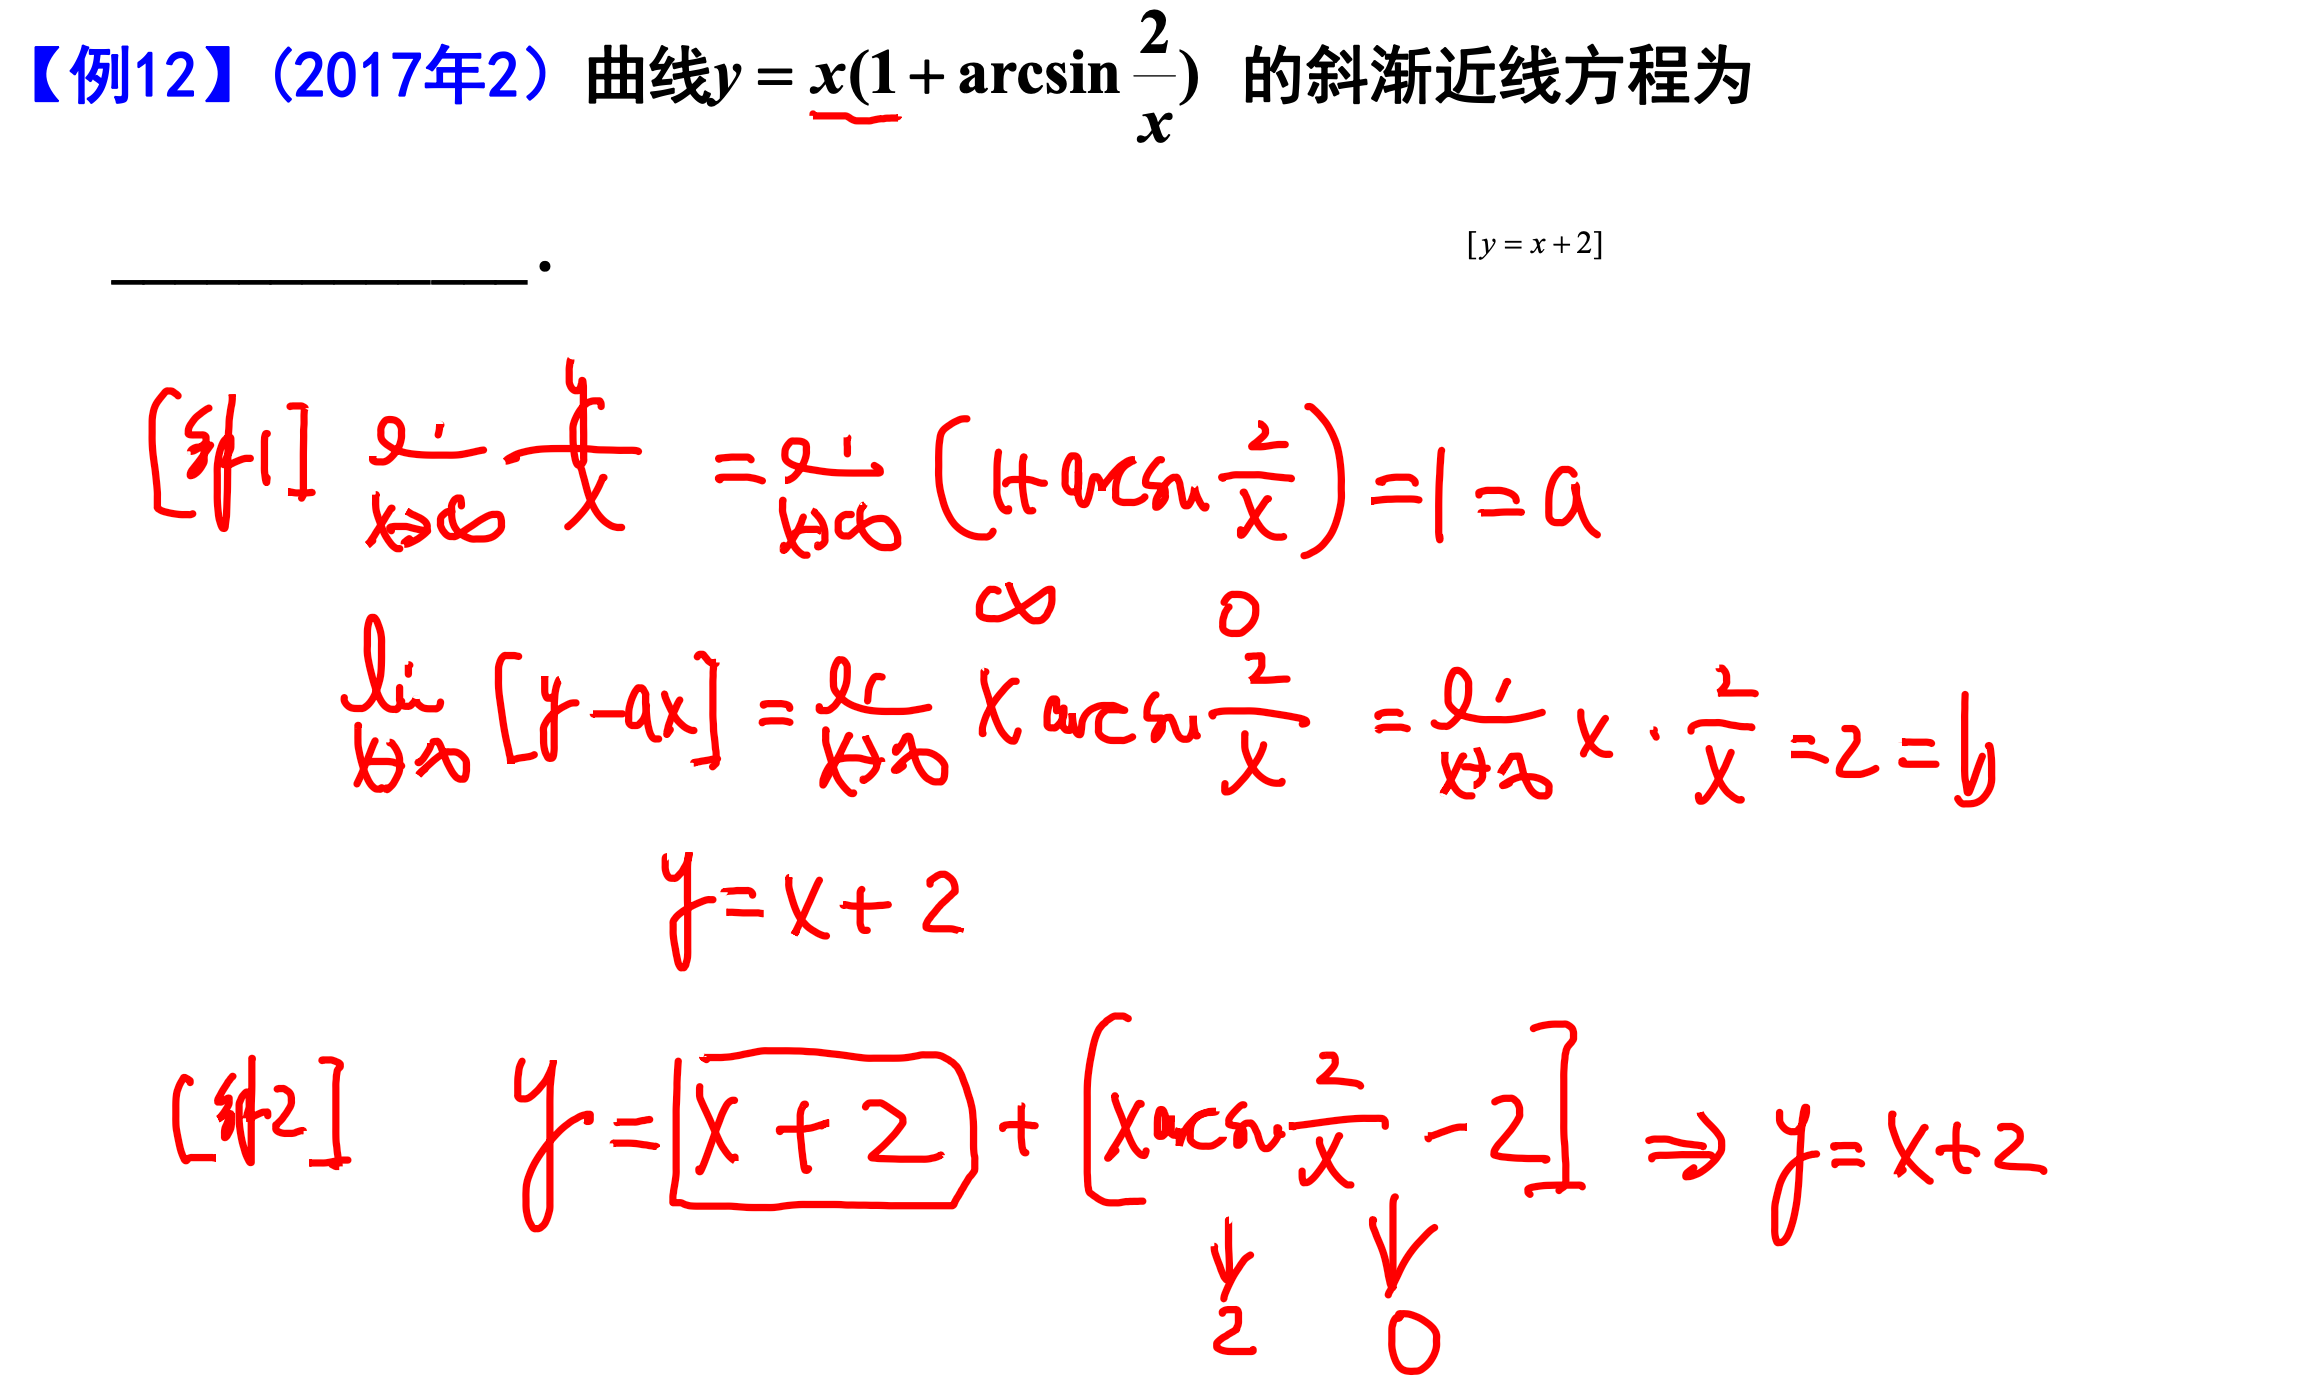 【例12】(2017年2) 曲线y = x(1 + arcsin 2/x) 的斜渐近线方程为
____________.
[y = x + 2]
[解1] lim x→∞ y/x = lim x→∞ (1 + arcsin 2/x) = 1 = a
∞ 0
lim x→∞ [y - ax] = lim x→∞ x arcsin 2/x = lim x→∞ x · 2/x = 2 = b
y = x + 2
[解2] y = x + 2 + [x arcsin 2/x - 2] ⇒ y = x + 2
↓ ↓
2 0